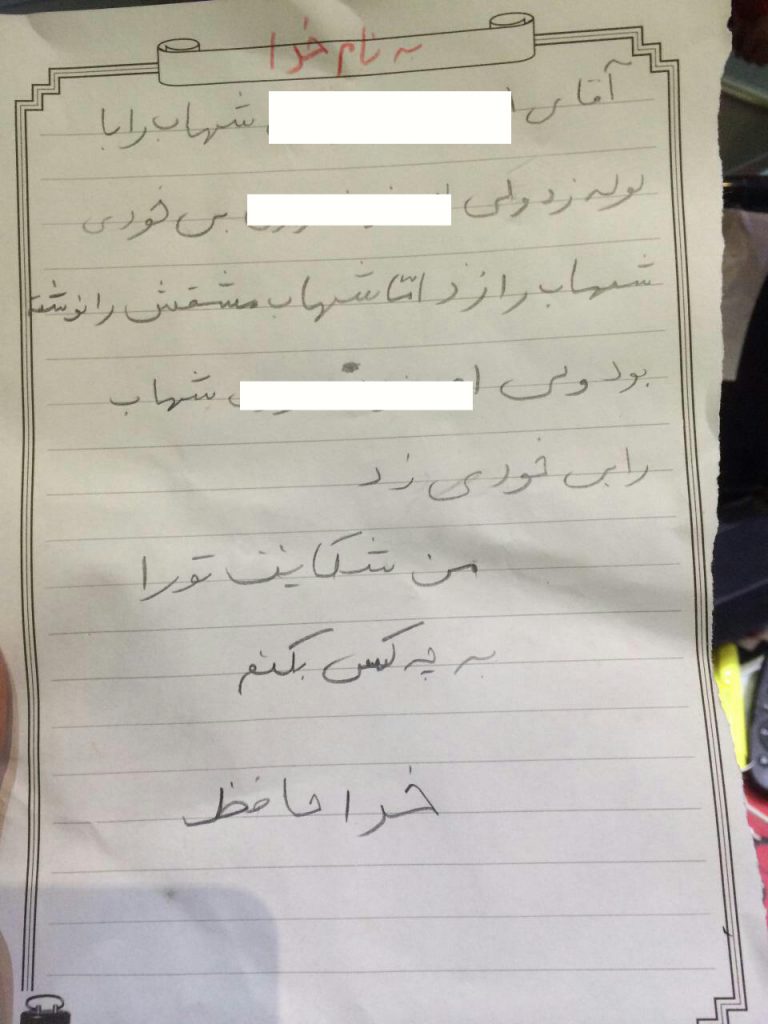 به نام خدا
آقای شهاب را با
لوله زد ولی بی خودی
شهاب را زد امّا شهاب مشقش را نوشته
بود ولی شهاب
را بی خودی زد
من شکایت تورا
به چه کس بکنم
خدا حافظ